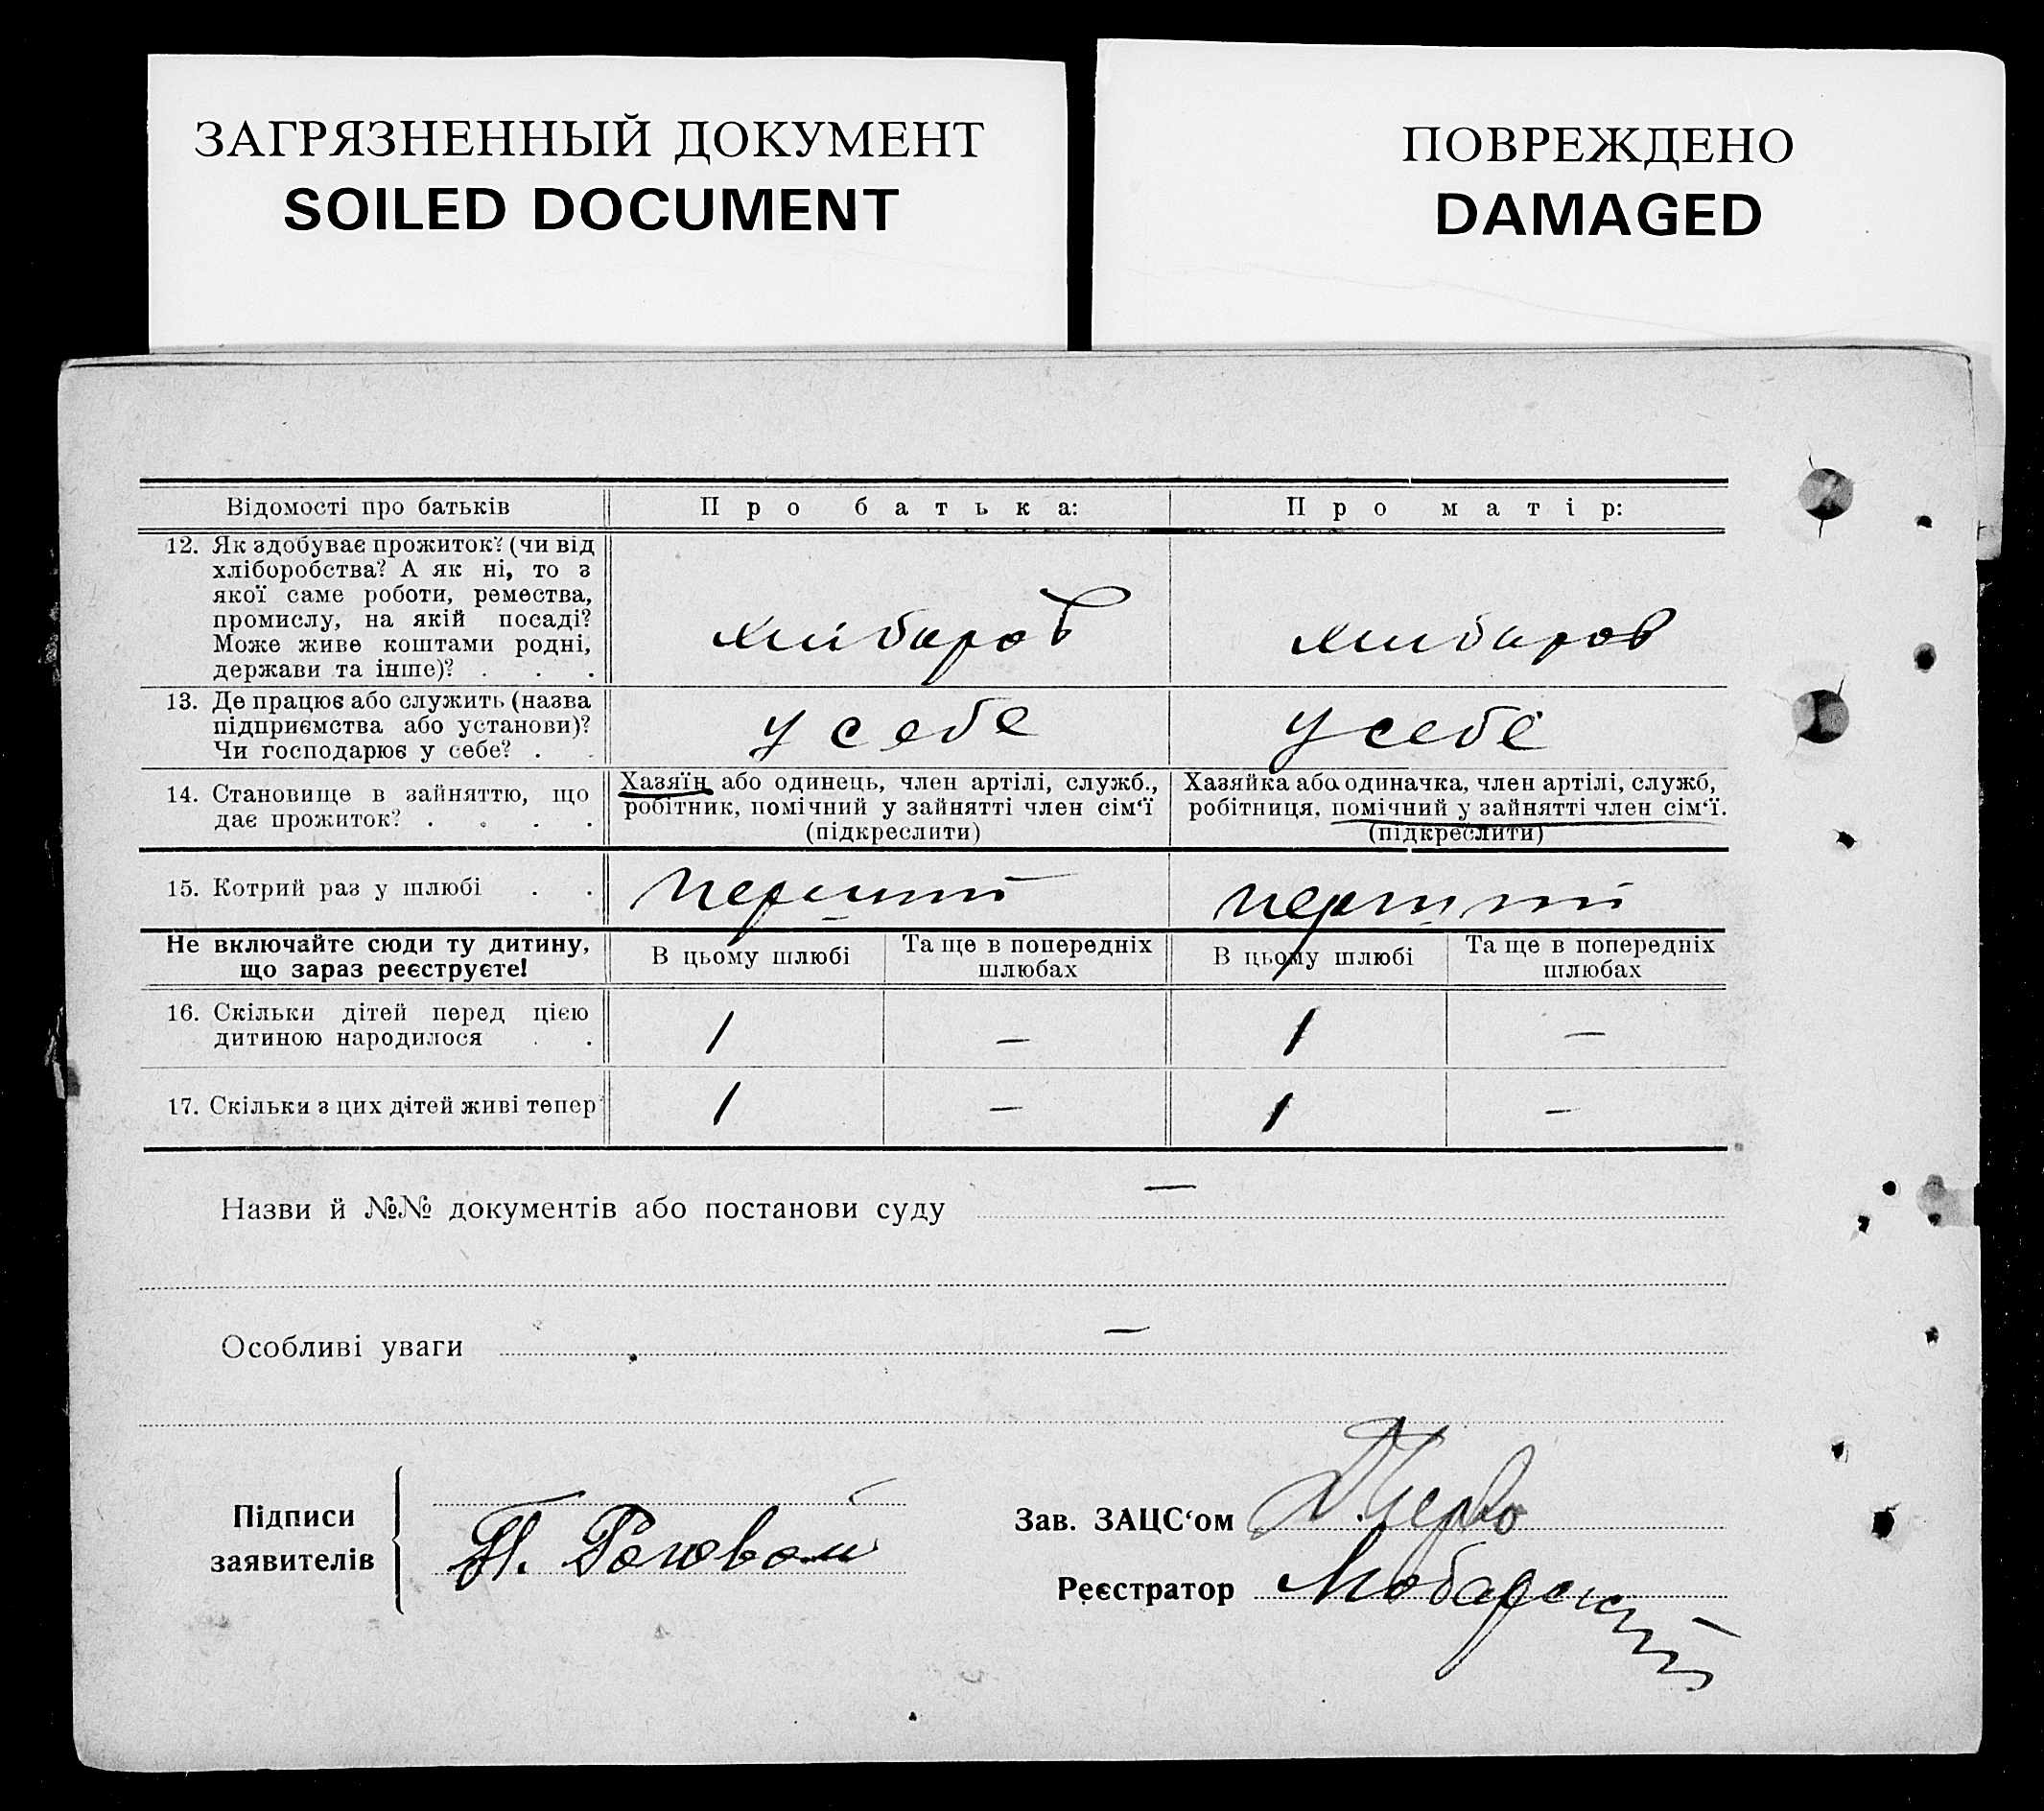 ЗАГРЯЗНЕННЫЙ ДОКУМЕНТ
SOILED DOCUMENT
ПОВРЕЖДЕНО
DAMAGED
Відомості про батьків
Про батька:
Про матір:
12. Як здобуває прожиток? (чи від
хліборобства? А як ні, то з
якої саме роботи, ремества,
промислу, на якій посаді?
Може живе коштами родні,
держави та інше)? . . .
хлібороб
хлібороб
13. Де працює або служить (назва
підприємства або установи)?
Чи господарює у себе? . .
у себе
у себе
14. Становище в зайняттю, що
дає прожиток? . . . .
Хазяїн або одинець, член артілі, служб.,
робітник, помічний у зайнятті член сім‘ї
(підкреслити)
Хазяйка або одиначка, член артілі, служб,
робітниця, помічний у зайнятті член сім‘ї.
(підкреслити)
15. Котрий раз у шлюбі . .
перший
перший
Не включайте сюди ту дитину,
що зараз реєструєте!
В цьому шлюбі
Та ще в попередніх
шлюбах
В цьому шлюбі
Та ще в попередніх
шлюбах
16. Скільки дітей перед цією
дитиною народилося . .
1
—
1
—
17. Скільки з цих дітей живі тепер
1
—
1
—
Назви й №№ документів або постанови суду —
Особливі уваги —
Підписи
заявителів
П.
Зав. ЗАЦС‘ом
Реєстратор